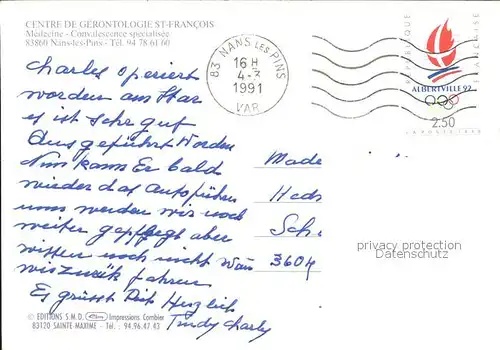 CENTRE DE GERONTOLOGIE ST-FRANÇOIS
Médecine - Convalescence spécialisée
83860 Nans-les-Pins - Tél. 94 78 61 60
83 NANS LES PINS
16 H
4-3
1991
VAR
REPUBLIQUE FRANÇAISE
ALBERTVILLE 92
2.50
LA POSTE 1990
Charles operiert
worden am Star
es ist sehr guf
Ausgeführt Worden
Nun kann Er bald
wieder das Autoführen
uns werden wir noch
weiter gepflegt aber
wissen noch nicht Wan
wir zurük fahren
Es grüsst Dich Herzlich
Trudy Charly
Made
Heds
Sch.
3604
privacy protection
Datenschutz
© EDITIONS S.M.D. Impressions Combier
83120 SAINTE-MAXIME - Tél. : 94.96.47.43